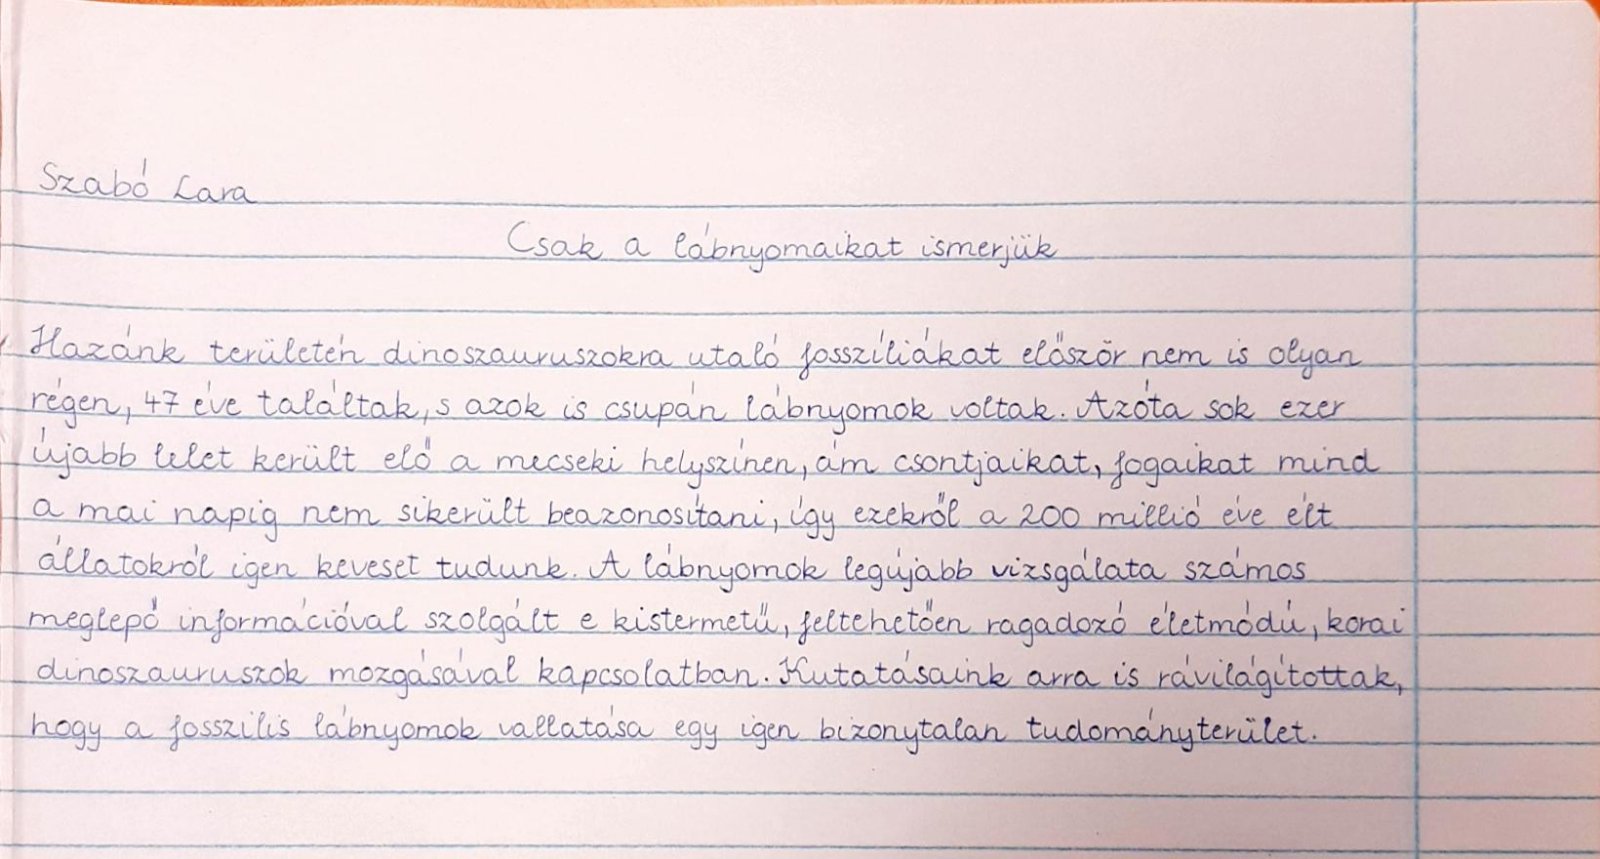 Szabó Lara
Csak a lábnyomaikat ismerjük
Hazánk területén dinoszauruszokra utaló fosszíliákat először nem is olyan
régen, 47 éve találtak, s azok is csupán lábnyomok voltak. Azóta sok ezer
újabb lelet került elő a mecseki helyszínen, ám csontjaikat, fogaikat mind
a mai napig nem sikerült beazonosítani, így ezekről a 200 millió éve élt
állatokról igen keveset tudunk. A lábnyomok legújabb vizsgálata számos
meglepő információval szolgált e kistermetű, feltehetően ragadozó életmódú, korai
dinoszauruszok mozgásával kapcsolatban. Kutatásaink arra is rávilágítottak,
hogy a fosszilis lábnyomok vallatása egy igen bizonytalan tudományterület.